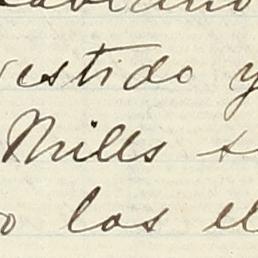 vestido y
Mills s
o los el